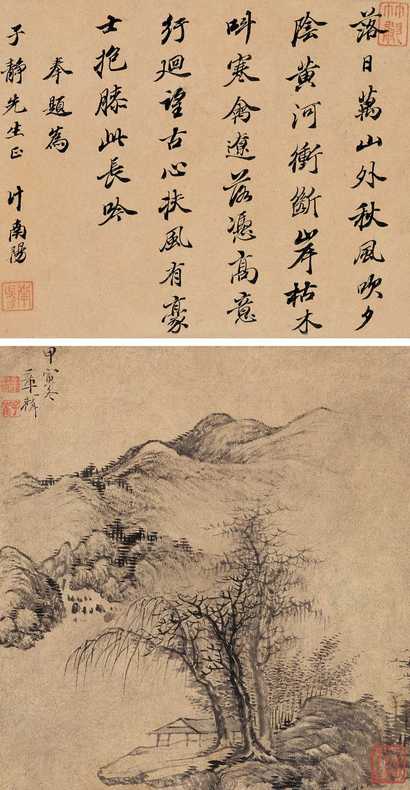 落日萬山外秋風吹夕
陰黃河衝斷岸枯木
叫寒禽遼落憑高意
行迴古心扶風有豪
士抱膝此長吟
奉題為
子靜先生正 南陽
甲寅冬